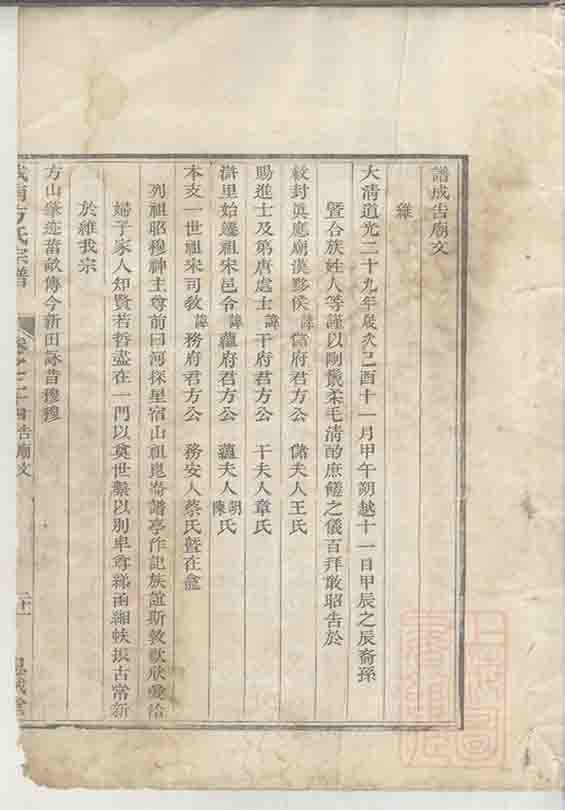 譜成告廟文
維
大淸道光二十九年歲次己酉十一月甲午朔越十一日甲辰之辰裔孫
暨合族姓人等謹以剛鬣柔毛淸酌庶饈之儀百拜敢昭告於
敕封眞應廟漢黟侯諱儲府君方公 儲夫人王氏
賜進士及第唐處士諱干府君方公 干夫人章氏
遷祖宋邑令諱蘊府君方公 蘊夫人胡陳氏
本支一世祖宋司教諱務府君方公 務安人蔡氏暨在龕
列祖昭穆神主尊前曰河探星宿山祖崑崙譜亭作記族誼斯敦歡欣愛洽
婦子家人知賢若哲盡在一門以奠世繫以別卑尊綈函緗帙振古常新
於維我宗
方山肇迹菑畝傳今新田詠昔穆穆
方氏宗譜
告廟文